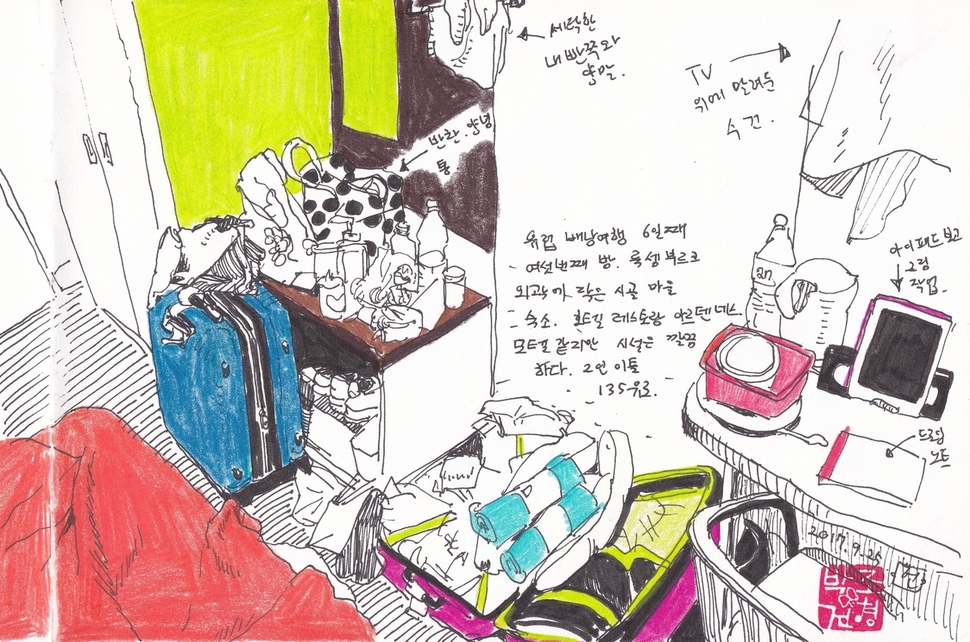 세탁한
내 반쪽와
양말.
TV
위에 말려둔
수건.
반찬. 양념
통
유럽 배낭여행 6일째
여섯번째 방. 룩셈부르크
외곽에 작은 시골 마을
숙소. 호텔 레스토랑 아르덴네스.
모트로 같지만 시설은 깔끔
하다. 2인 이틀
135유로.
아이패드 보고
그림
작업.
드로잉
노트
2017. 9. 26